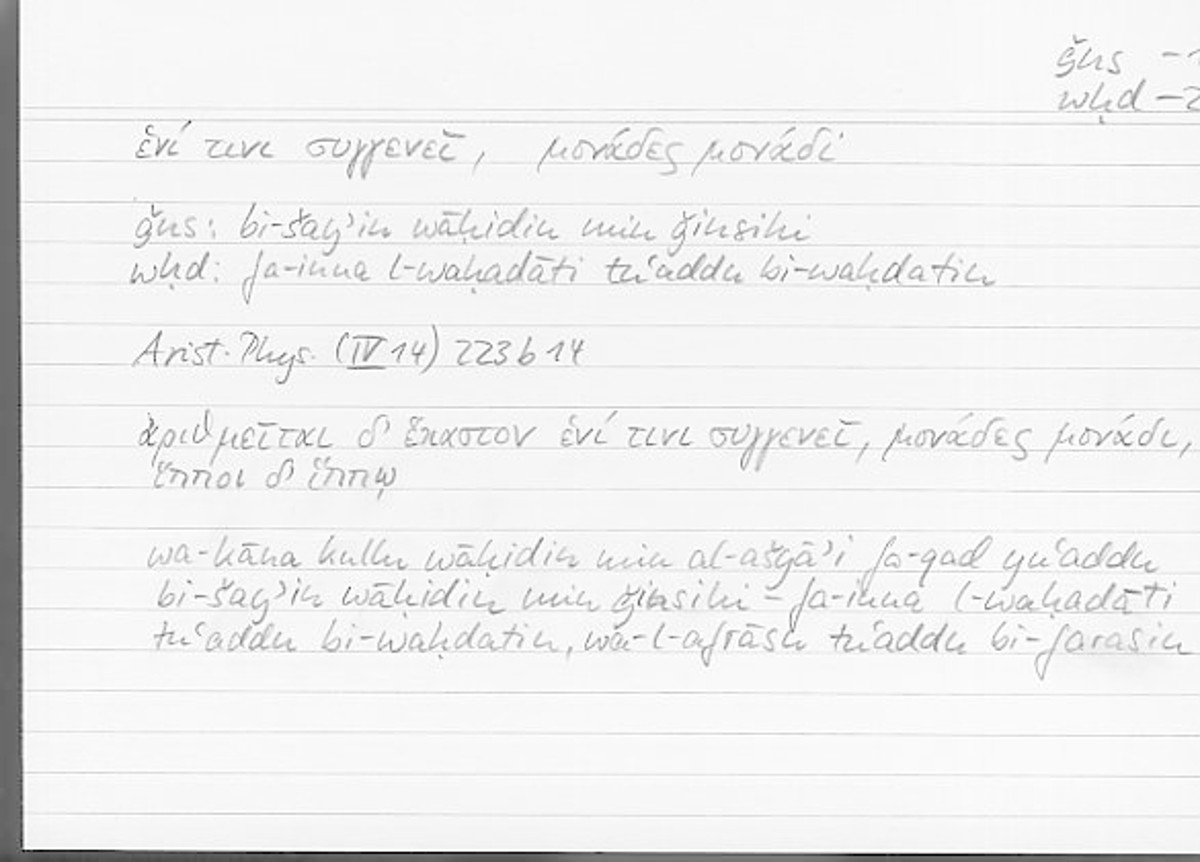 ǧns –1
wḥd –2
ἑνί τινι συγγενεῖ, μονάδες μονάδι
ǧns: bi-šayʾin wāḥidin min ǧinsihi
wḥd: fa-inna l-waḥadāti tuʿaddu bi-waḥdatin
Arist. Phys. (IV 14) 223 b 14
ἀριθμεῖται δ' ἕκαστον ἑνί τινι συγγενεῖ, μονάδες μονάδι,
ἵπποι δ' ἵππῳ
wa-kāna kullu wāḥidin min al-ašyāʾi fa-qad yuʿaddu
bi-šayʾin wāḥidin min ǧinsihi – fa-inna l-waḥadāti
tuʿaddu bi-waḥdatin, wa-l-afrāsu tuʿaddu bi-farasin